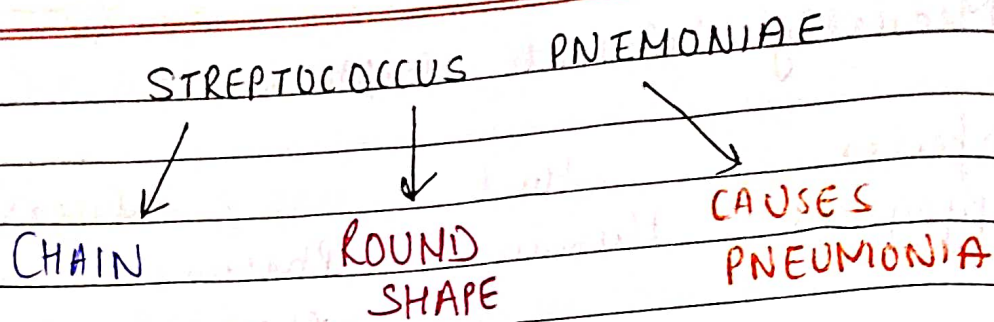 STREPTOCOCCUS PNEMONIAE
CHAIN ROUND CAUSES
SHAPE PNEUMONIA